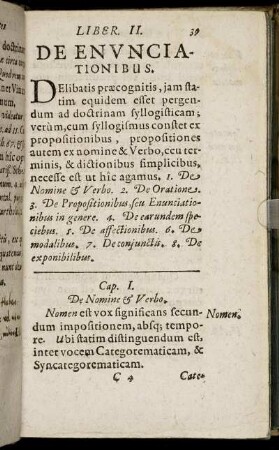 LIBER. II. 39
DE ENVNCIA-
TIONIBUS.
DElibatis præcognitis, jam sta-
tim equidem esset pergen-
dum ad doctrinam syllogisticam;
verùm, cum syllogismus constet ex
propositionibus, propositiones
autem ex nomine & Verbo, ceu ter-
minis, & dictionibus simplicibus,
necesse est ut hîc agamus, 1. De
Nomine & Verbo. 2. De Oratione.
3. De Propositionibus seu Enunciatio-
nibus in genere. 4. De earundem spe-
ciebus. 5. De affectionibus. 6. De
modalibus. 7. De conjunctis. 8. De
exponibilibus.
Cap. I.
De Nomine & Verbo.
Nomen est vox significans secun-
dum impositionem, absq; tempo-
re. Ubi statim distinguendum est,
inter vocem Categorematicam, &
Syncategorematicam.
Nomen.
C 4 Cate-